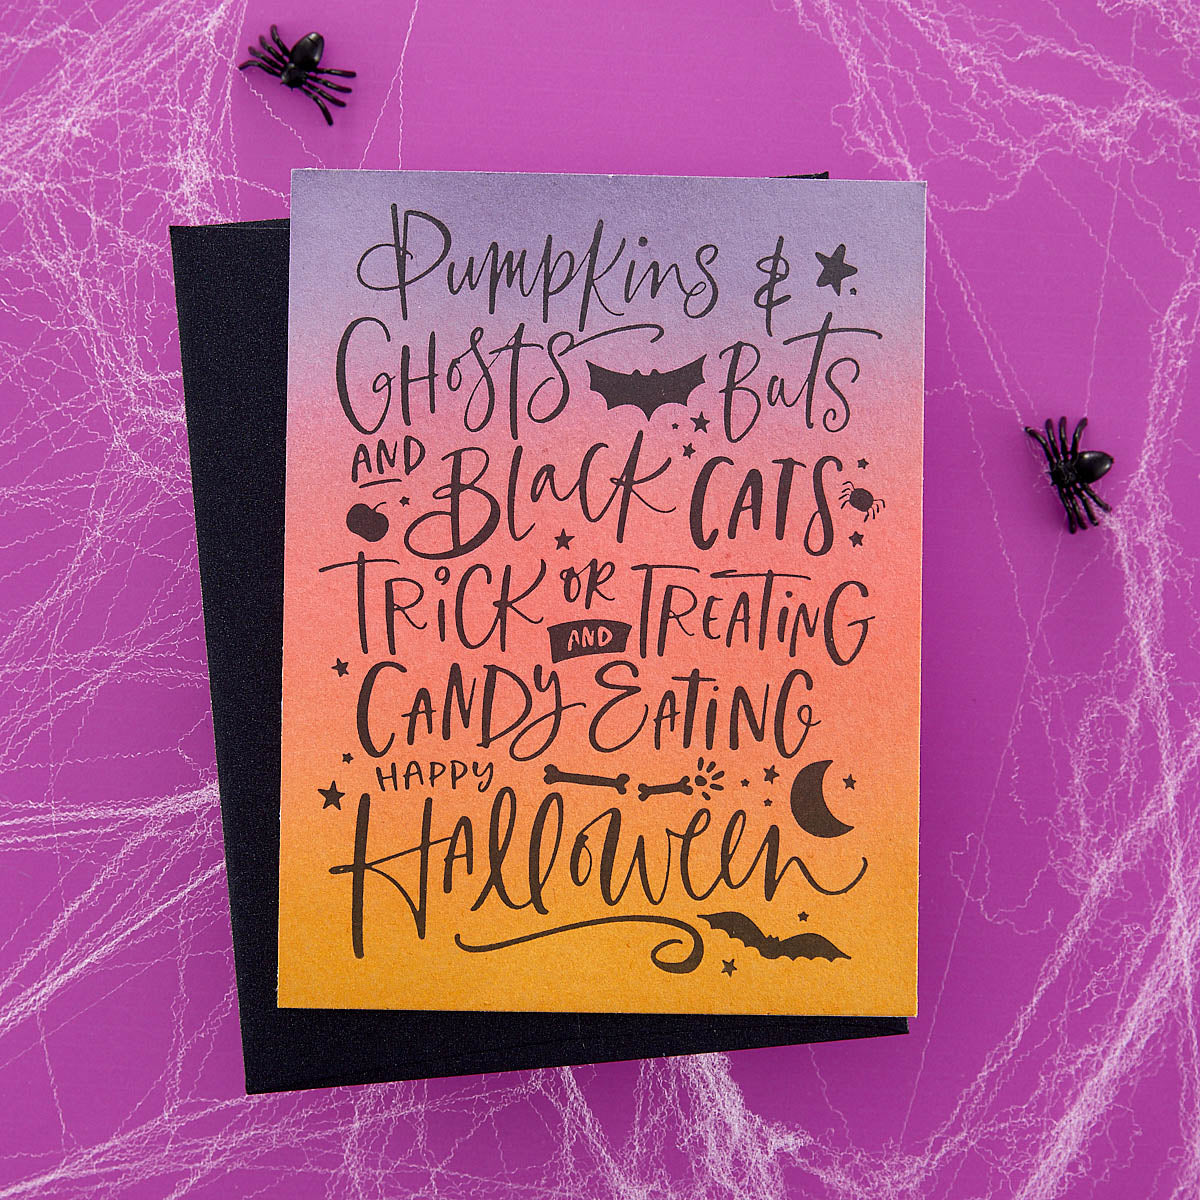 Pumpkins &
GHosTS BaTS
AND BlaCK CATS
TRiCK OR TREATiNG
AND
CANDY EATiNG
HAPPY
Halloween